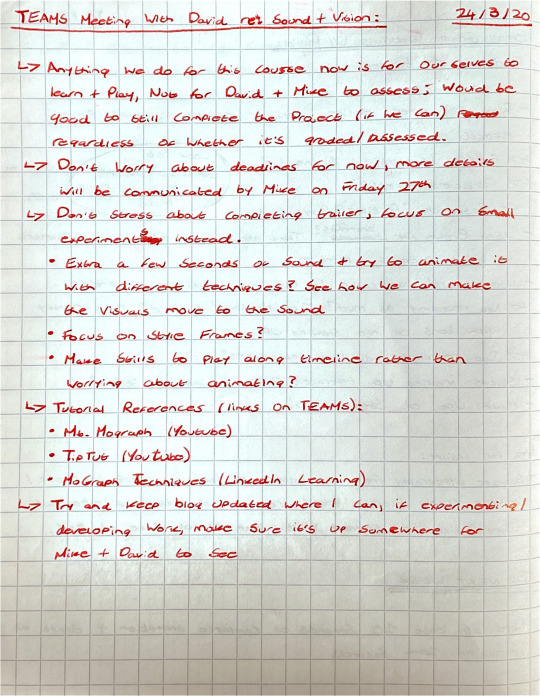 TEAMS Meeting With David re: Sound + Vision: 24/3/20
↳ Anything we do for this course now is for ourselves to
learn + Play, Not for David + Mike to assess; Would be
good to still complete the Project (if we can)
regardless of whether it's graded/assessed.
↳ Don't Worry about deadlines for now, more details
will be communicated by Mike on Friday 27th
↳ Don't stress about completing trailer, focus on small
experiments instead.
• Extra a few seconds of sound & try to animate it
with different techniques? See how we can make
the Visuals move to the sound
• Focus on Style Frames?
• Make Stills to Play along timeline rather than
worrying about animating?
↳ Tutorial References (links on TEAMS):
• Mt. Mograph (Youtube)
• TipTut (YouTube)
• MoGraph Techniques (LinkedIn Learning)
↳ Try and keep blog updated where I can, if experimenting/
developing work, make sure it's up somewhere for
Mike + David to see